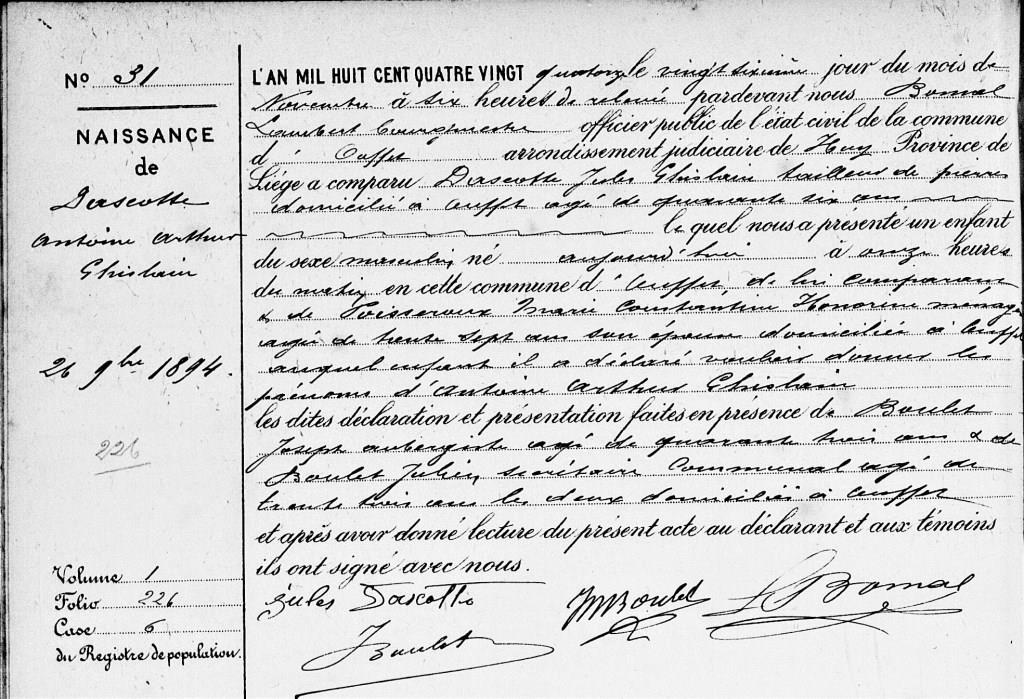 No 31
NAISSANCE
de
Dascotte
Antoine Arthur
Ghislain
26 9bre 1894.
226
Volume 1
Folio 226
Case 6
du Registre de population.
L'AN MIL HUIT CENT QUATRE VINGT quatorze le vingt sixième jour du mois de
Novembre à six heures de relevé pardevant nous Bomal
Lambert bourgmestre officier public de l'état civil de la commune
d' Ouffet arrondissement judiciaire de Huy Province de
Liége a comparu Dascotte Jules Ghislain tailleur de pierres
domicilié à Ouffet agé de quarante six ans
le quel nous a présenté un enfant
du sexe masculin, né aujourd'hui à onze heures
du matin en cette commune d'Ouffet, de lui comparant
& de Poisseroux Marie Constantine Honorine ménagère
agée de trente sept ans son épouse domiciliée à Ouffet
auquel enfant il a déclaré vouloir donner les
prénoms d'Antoine Arthur Ghislain
les dites déclaration et présentation faites en présence de Boulet
Joseph aubergiste agé de quarante trois ans & de
Boulet Julien, secrétaire communal agé de
trente trois ans les deux domiciliés à Ouffet
et après avoir donné lecture du présent acte au déclarant et aux témoins
ils ont signé avec nous.
Jules Dascotte
JMBoulet
L Bomal
JBoulet